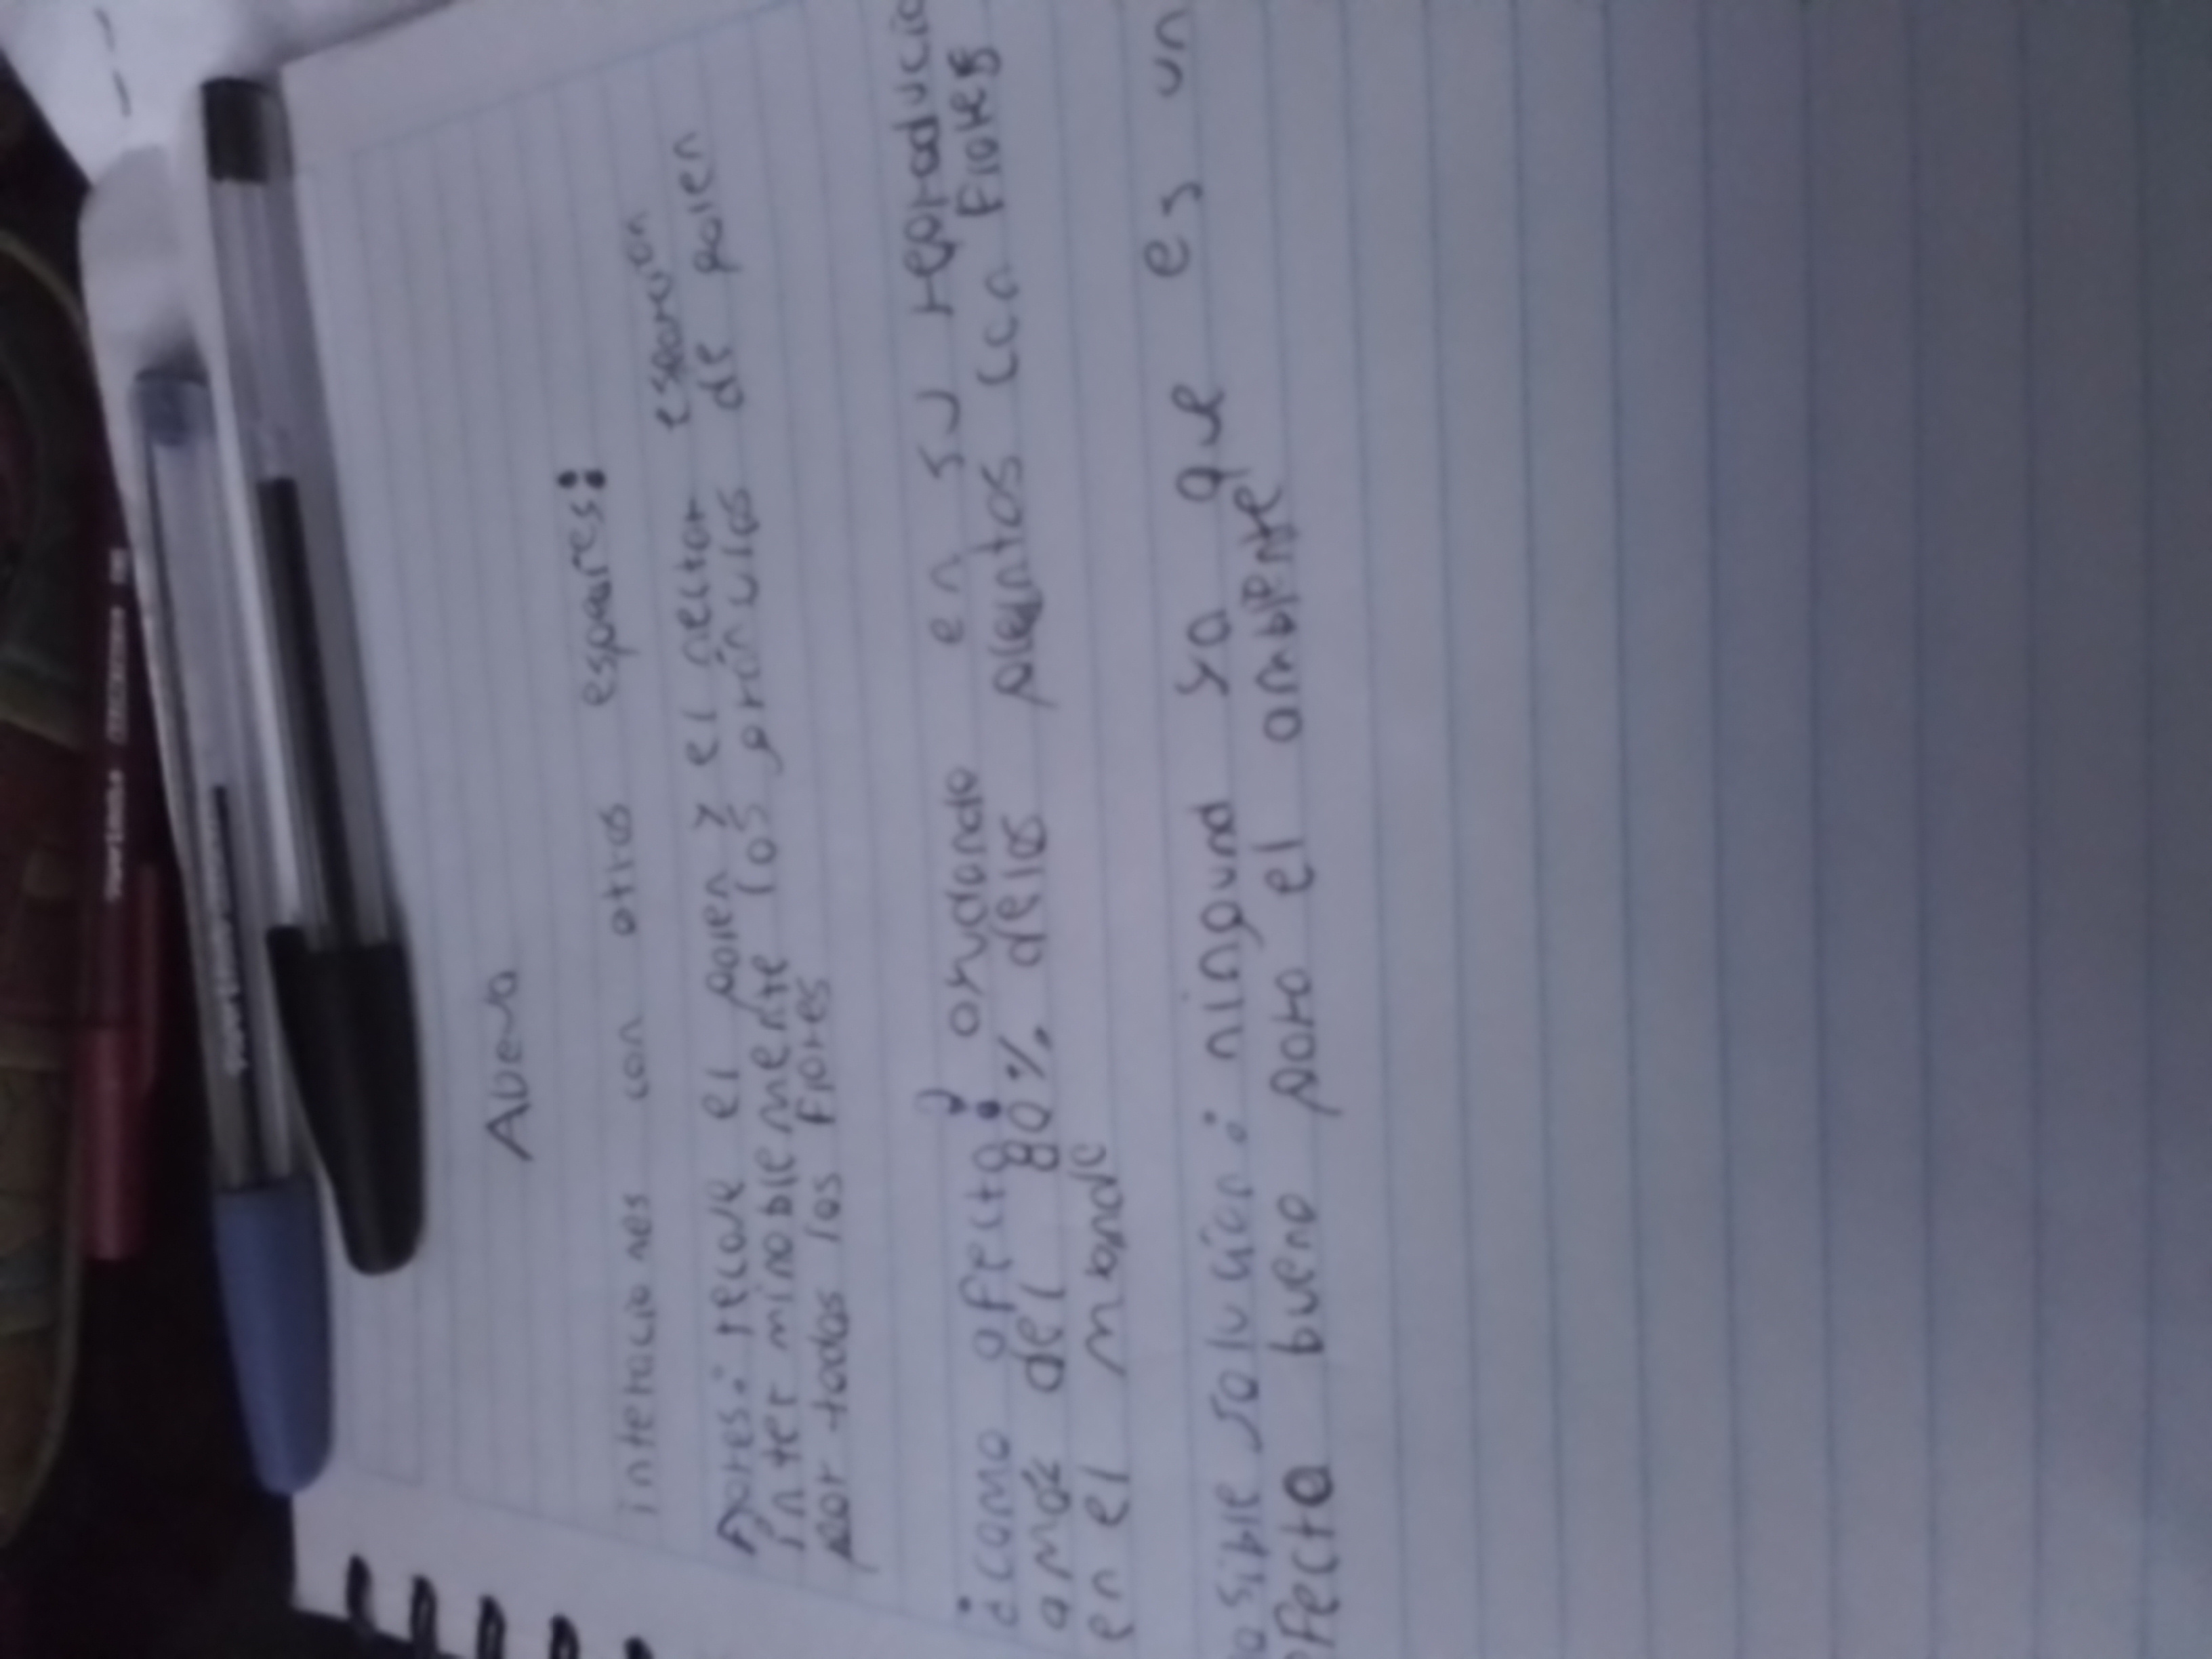 Abeja
interaciones con otros espesies:
flores: recoje el polen y el nectar esparcion
interminoblemente los granulos de polen
por todas las flores
¿como afecta? ayudando en su reproducio
a mas del 80% delas plantas con flores
en el mundo
osible solucion: ninguna ya que es un
efecto bueno para el anbiente